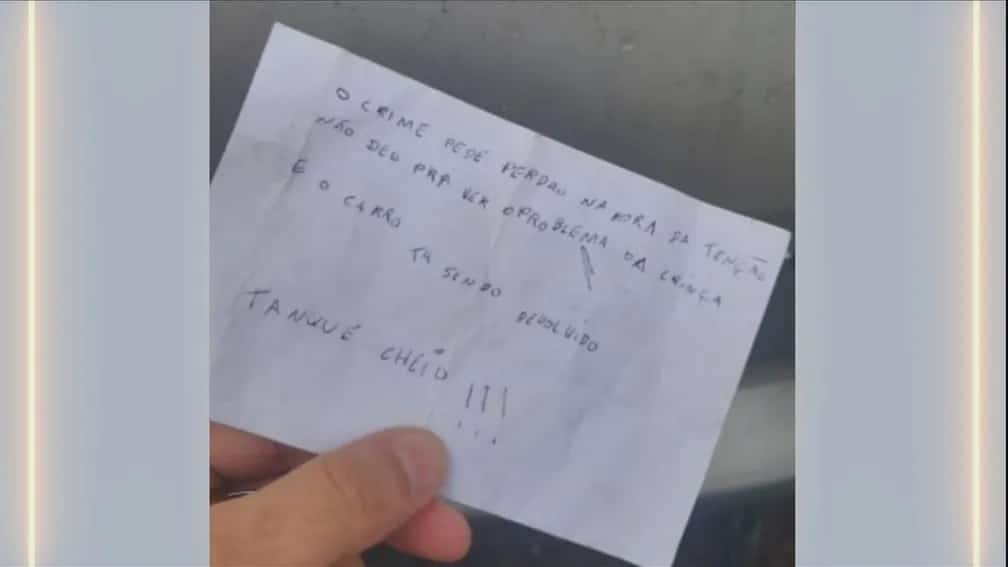 O CRIME PEDE PERDÃO NA HORA DA TENÇÃO
NÃO DEU PRA VER O PROBLEMA DA CRINÇA
E O CARRO TÁ SENDO DEVOLVIDO
TANQUE CHEIO !!!